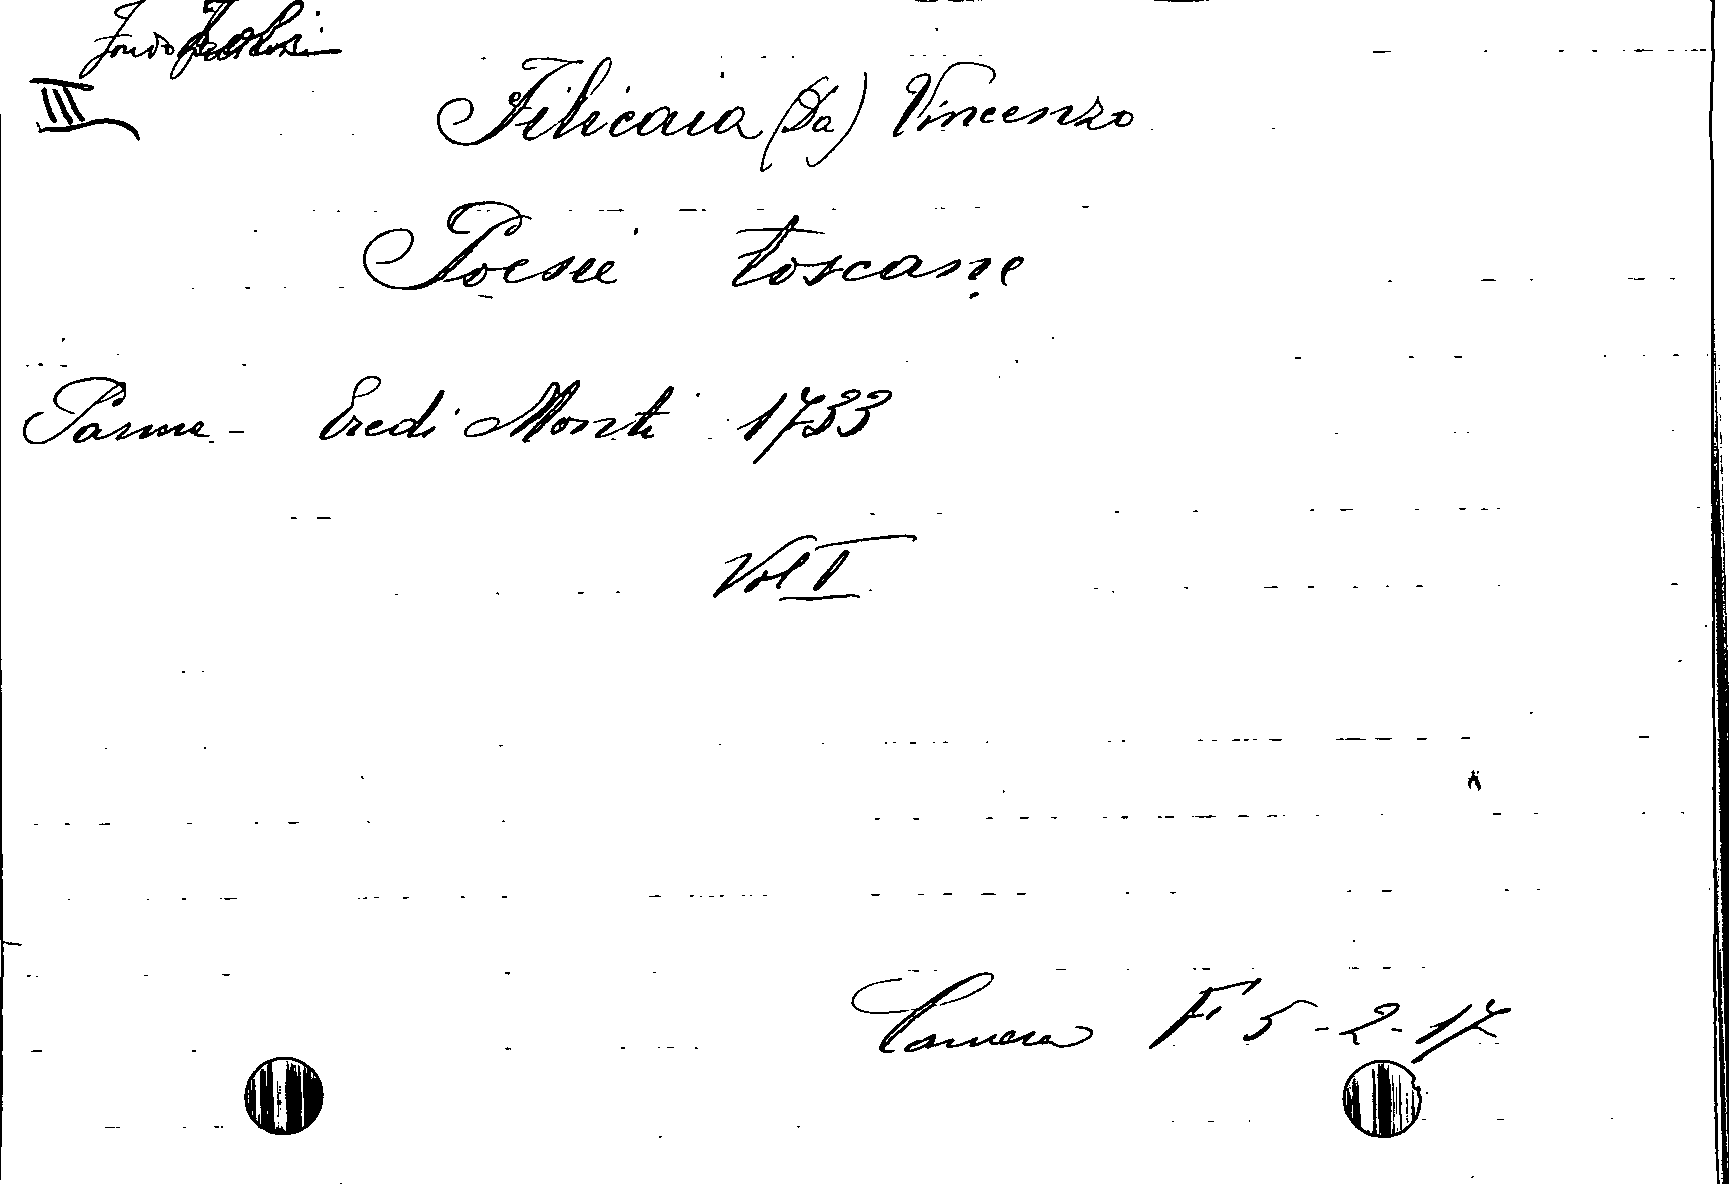 Fondo
III
Filicaia (Da) Vincenzo
Poesie toscane
Parma - Eredi Monti 1733
Vol I
Camera F 5-2-17